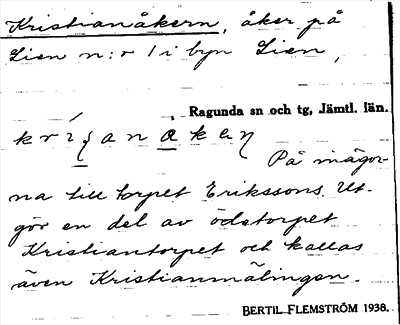 Kristianåkern, åker på
Lien n:o 1 i byn Lien,
Ragunda sn och tg, Jämtl. län.
På mägor-
na till torpet Erikssons. Ut-
gör en del av ödetorpet
Kristiantorpet och kallas
även Kristianmälingen.
BERTIL FLEMSTRÖM 1938.